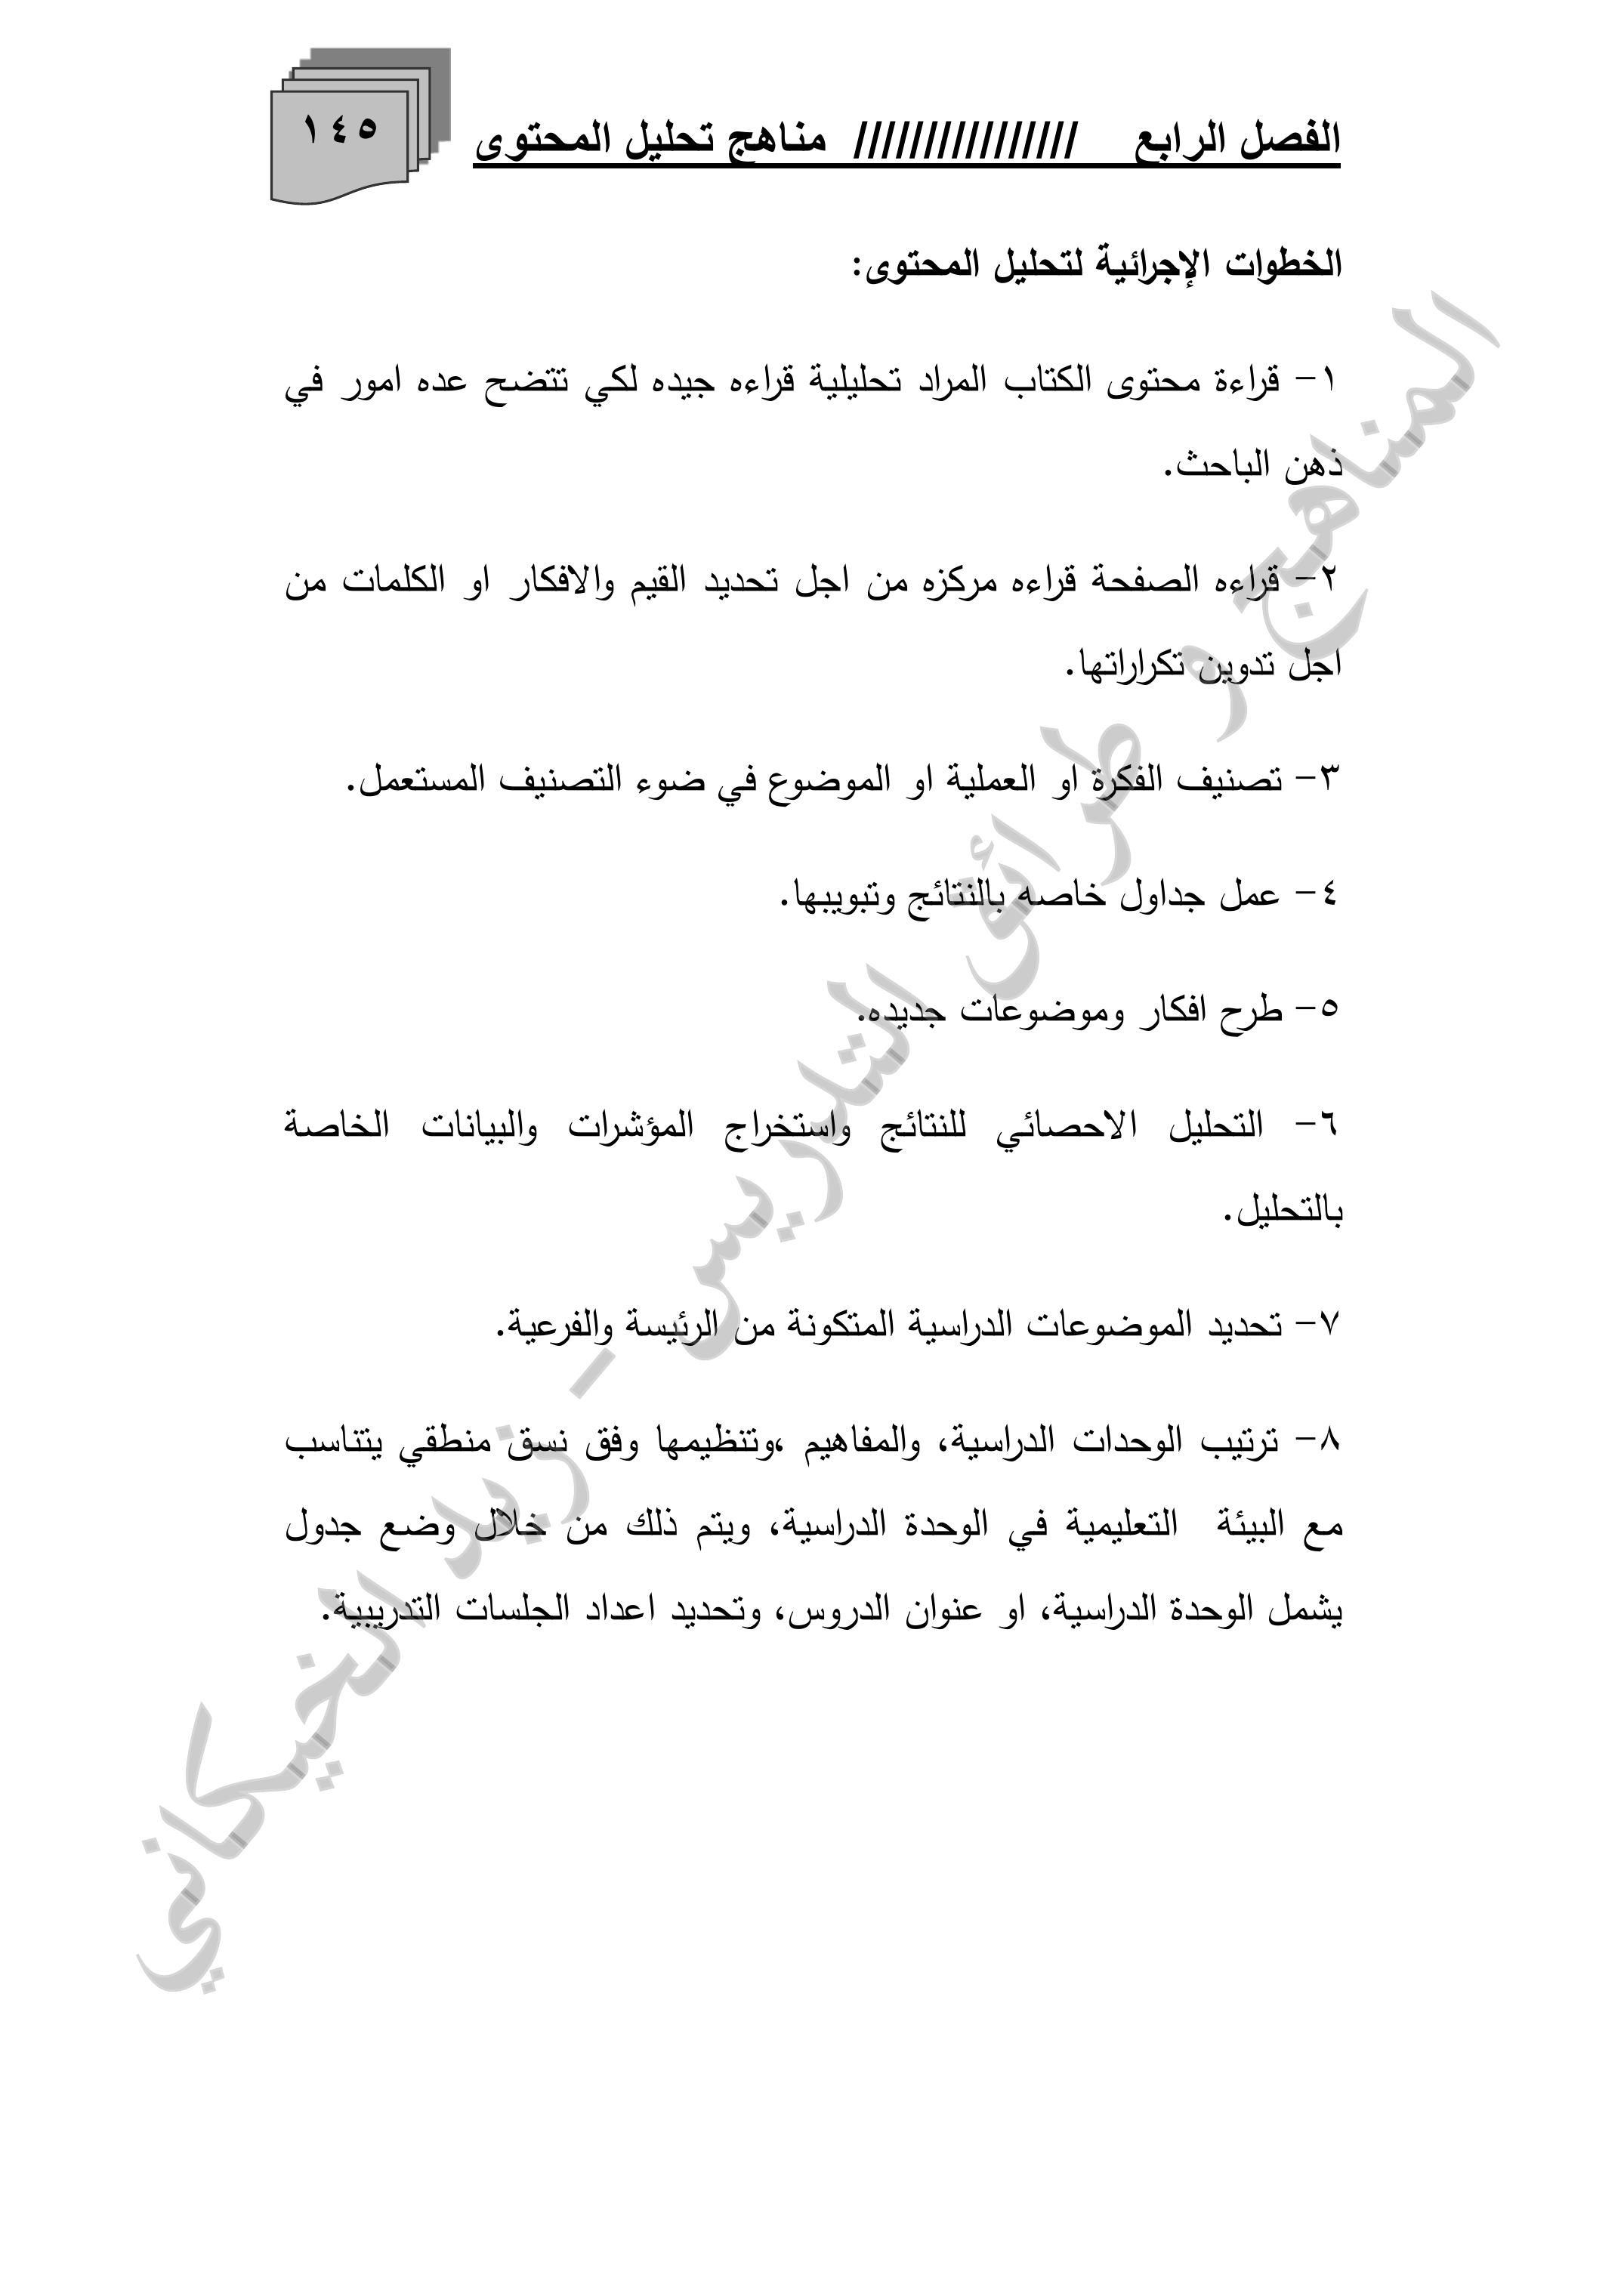 الفصل الرابع //////////////// مناهج تحليل المحتوى
١٤٥
الخطوات الإجرائية لتحليل المحتوى:
١- قراءة محتوى الكتاب المراد تحليلية قراءه جيده لكي تتضح عده امور في
ذهن الباحث.
٢- قراءه الصفحة قراءه مركزه من اجل تحديد القيم والافكار او الكلمات من
اجل تدوين تكراراتها.
٣- تصنيف الفكرة او العملية او الموضوع في ضوء التصنيف المستعمل.
٤- عمل جداول خاصه بالنتائج وتبويبها.
٥- طرح افكار وموضوعات جديده.
٦- التحليل الاحصائي للنتائج واستخراج المؤشرات والبيانات الخاصة
بالتحليل.
٧- تحديد الموضوعات الدراسية المتكونة من الرئيسة والفرعية.
٨- ترتيب الوحدات الدراسية، والمفاهيم ،وتنظيمها وفق نسق منطقي يتناسب
مع البيئة التعليمية في الوحدة الدراسية، ويتم ذلك من خلال وضع جدول
يشمل الوحدة الدراسية، او عنوان الدروس، وتحديد اعداد الجلسات التدريبية.
المناهج و طرائق التدريس - زيد الخيكاني